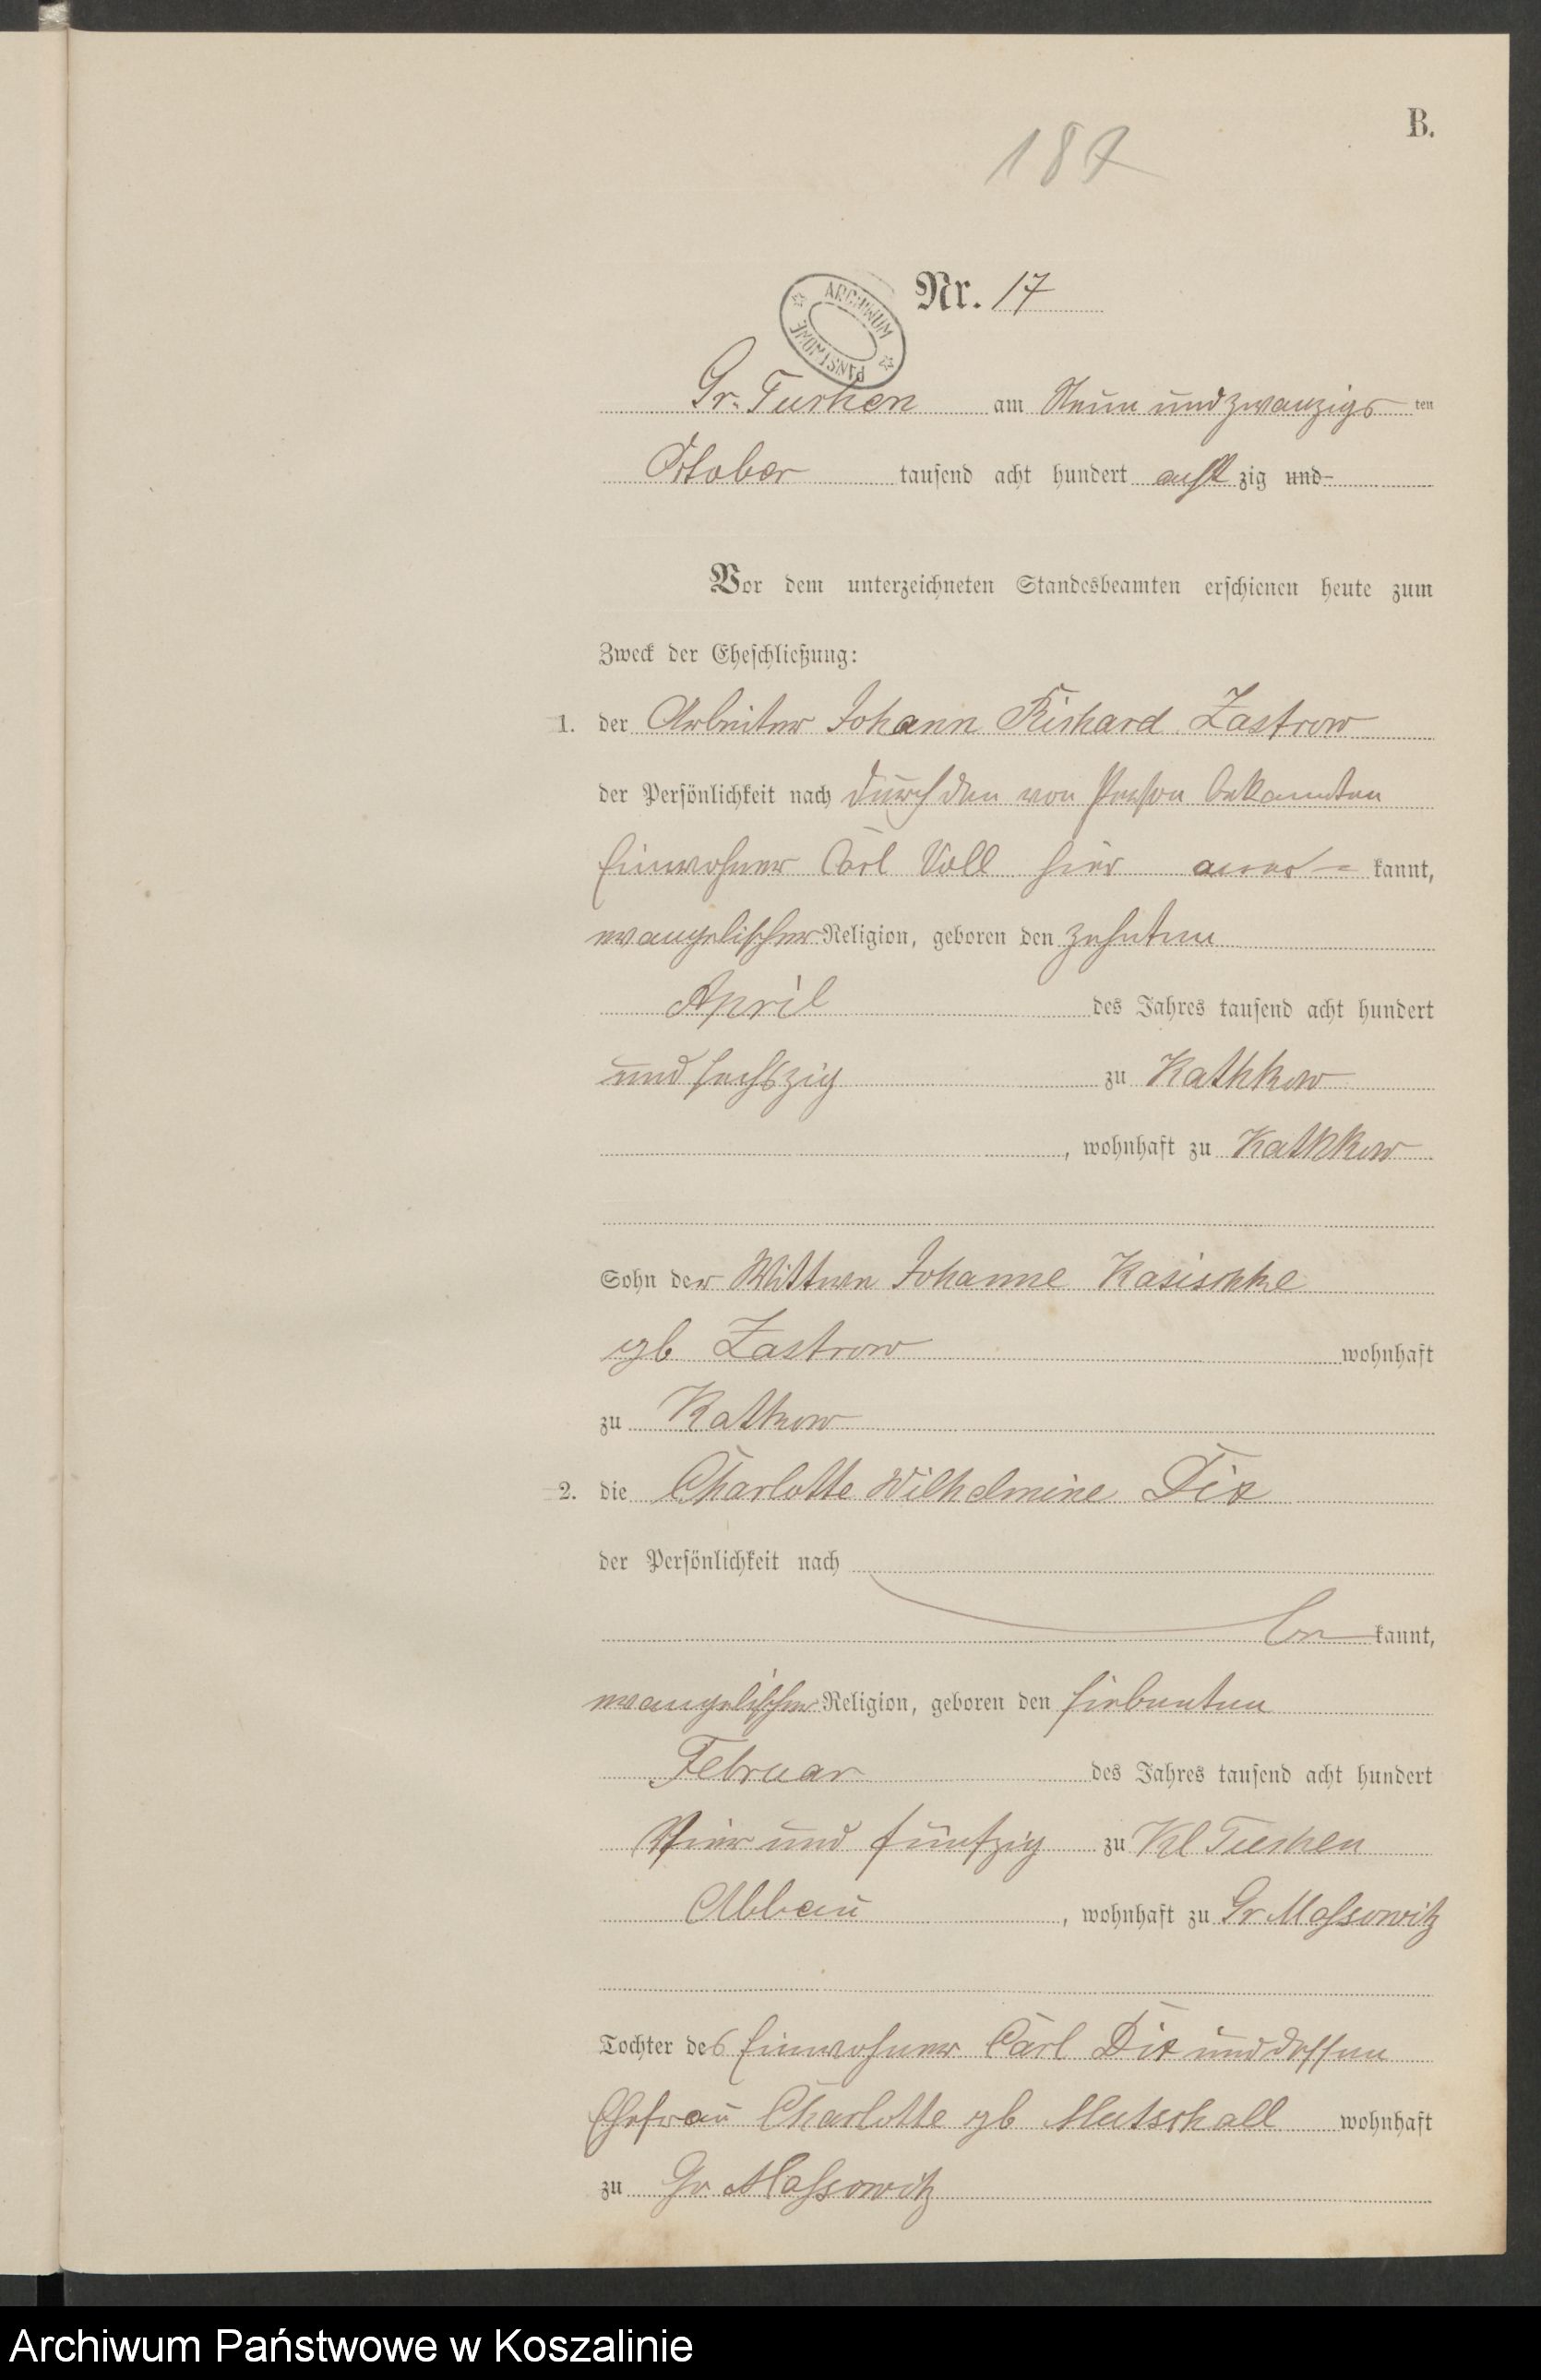 B.
187
Nr. 17
ARCHIWUM PAŃSTWOWE
Gr. Tuchen am Neun und zwanzigs ten
October tausend acht hundert acht zig und
Vor dem unterzeichneten Standesbeamten erschienen heute zum
Zweck der Eheschließung:
1. der Arbeiter Johann Richard Zastrow
der Persönlichkeit nach durch den von Person bekannten
Einwohner Carl Voll hier aner= kannt,
evangelischer Religion, geboren den zehnten
April des Jahres tausend acht hundert
und sechszig zu Kathkow
, wohnhaft zu Kathkow
Sohn der Wittwe Johanne Kasischke
gb Zastrow wohnhaft
zu Katkow
2. die Charlotte Wilhelmine Dix
der Persönlichkeit nach
be kannt,
evangelischer Religion, geboren den siebenten
Februar des Jahres tausend acht hundert
Vier und fünfzig zu Kl Tuchen
Abbau , wohnhaft zu Gr Massowitz
Tochter des Einwohner Carl Dix und dessen
Ehefrau Charlotte gb Mutschall wohnhaft
zu Gr. Massowitz
Archiwum Państwowe w Koszalinie